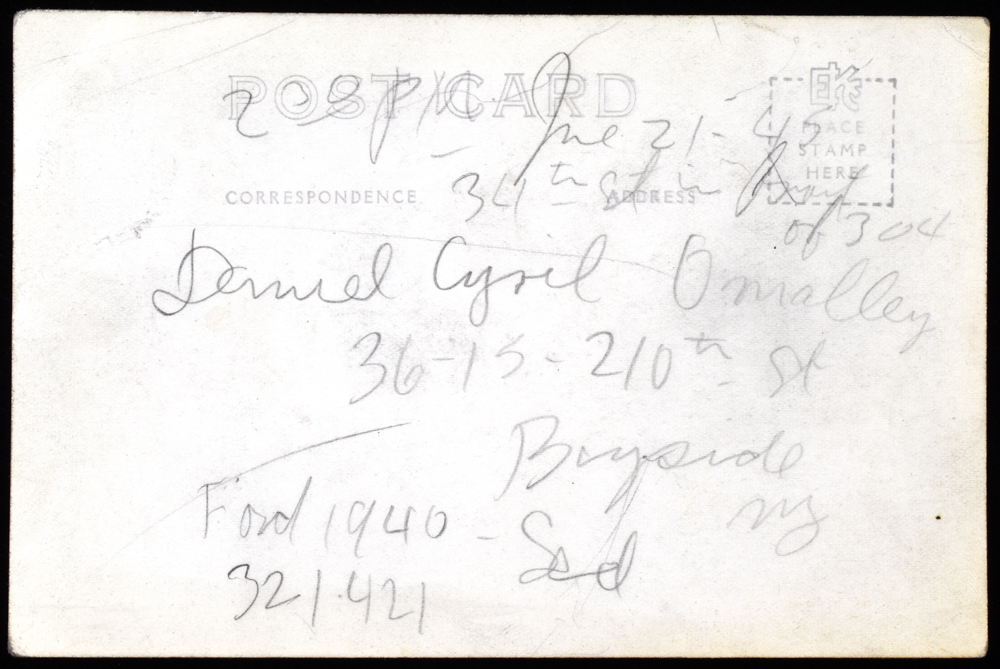 POST CARD
EKC
PLACE
STAMP
HERE
CORRESPONDENCE
ADDRESS
2 PM June 21-45
34th St in
of 304
Daniel Cyril Omalley
36-15-210th St
Bayside
NY
Ford 1940 - Sed
321.421